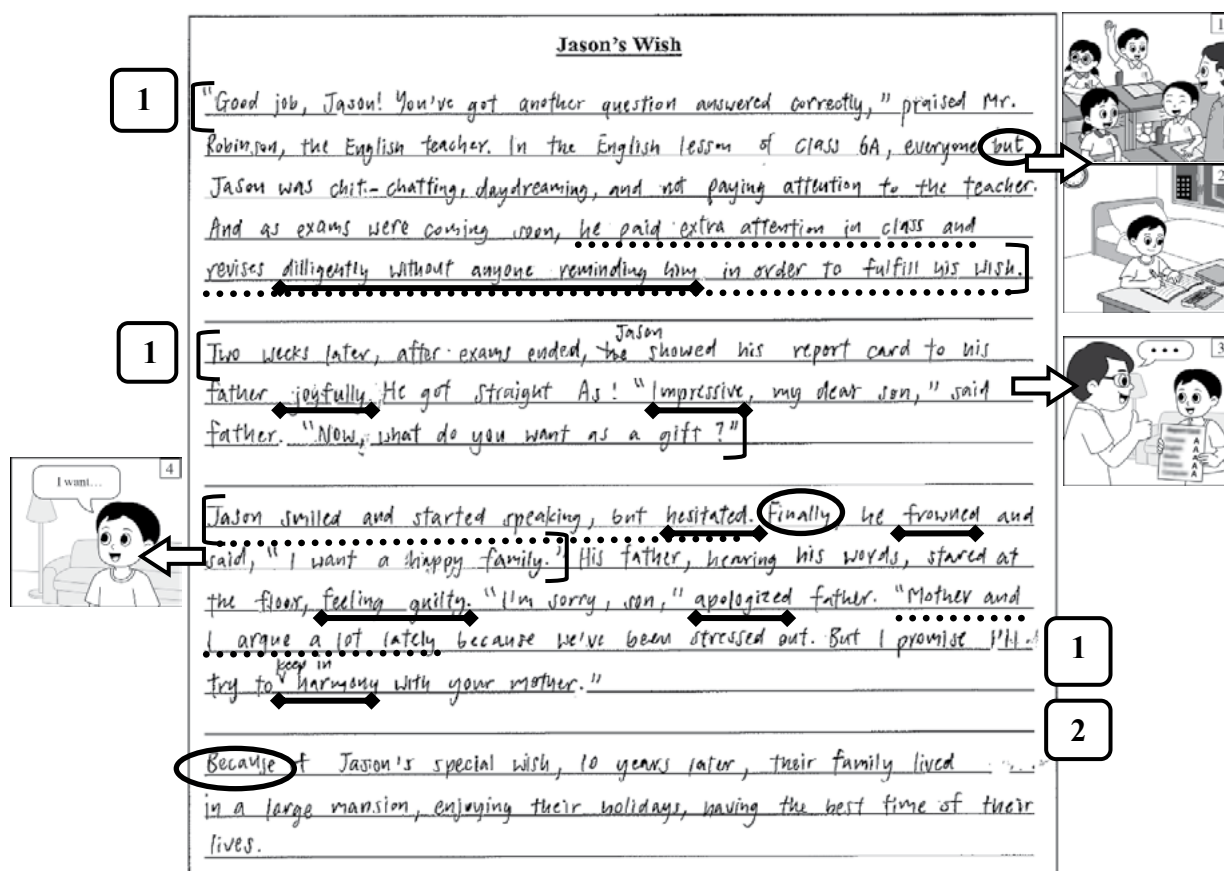 Jason's Wish
1
1
"Good job, Jason! You've got another question answered correctly," praised Mr.
Robinson, the English teacher. In the English lesson of class 6A, everyone but
Jason was chit-chatting, daydreaming, and not paying attention to the teacher.
2
And as exams were coming soon, he paid extra attention in class and
revises dilligently without anyone reminding him in order to fulfill his wish.
1
Two weeks later, after exams ended, he Jason showed his report card to his
3
...
father joyfully. He got straight As! "Impressive, my dear son," said
father. "Now, what do you want as a gift?"
A
A
A
A
A
4
I want...
Jason smiled and started speaking, but hesitated. Finally he frowned and
said, "I want a happy family." His father, hearing his words, stared at
the floor, feeling guilty. "I'm sorry, son," apologized father. "Mother and
I argue a lot lately because we've been stressed out. But I promise I'll
1
try to keep in harmony with your mother."
2
Because of Jason's special wish, 10 years later, their family lived
in a large mansion, enjoying their holidays, having the best time of their
lives.